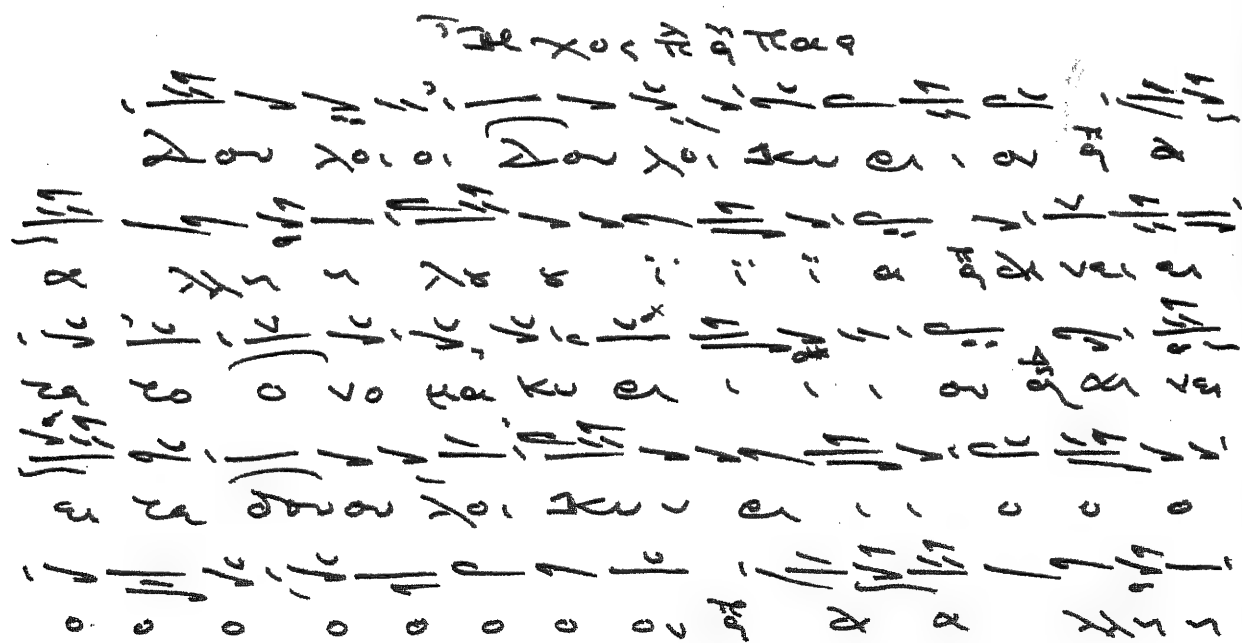 Ἦχος πλ ᾳ Πα
Δου λοι οι Δου λοι Κυ ρι ι ου πα α
α λλη η λου ου ι ι ι ι α πα αι νει ει
τε το ο νο μα Κυ ρι ι ι ι ου Δι αι νει
ει τε δου ου λοι Κυ υ ρι ι ι ο ο ο
ο ο ο ο ο ο ο ου πα α α λλη η